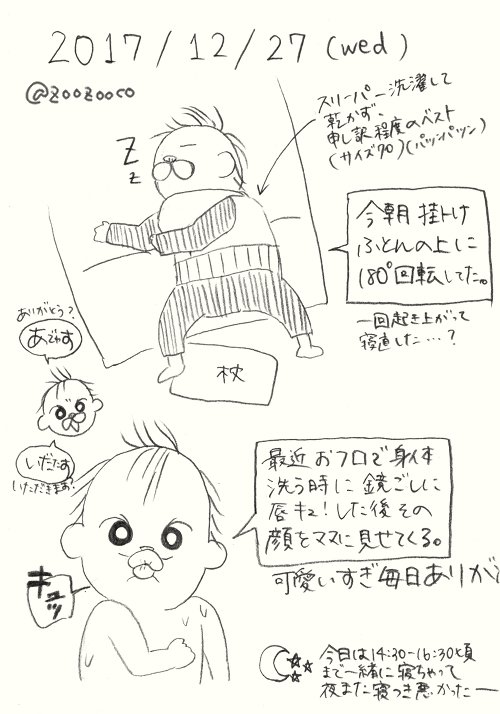 2017/12/27 (wed)
@zoozooco
スリーパー洗濯して
乾かず、
申し訳程度のベスト
(サイズ70)(パッツンパッツン)
Z
z
今朝 掛け
ふとんの上に
180°回転してた。
一回起き上がって
寝直した…?
枕
ありがとう?
あでゅす
いだだす
いただきます?
最近おフロで身体
洗う時に鏡ごしに
唇キュ!した後その
顔をママに見せてくる。
可愛いすぎ毎日ありがと
キュッ
今日は14:30-16:30頃
まで一緒に寝ちゃって
夜また寝つき悪かったー